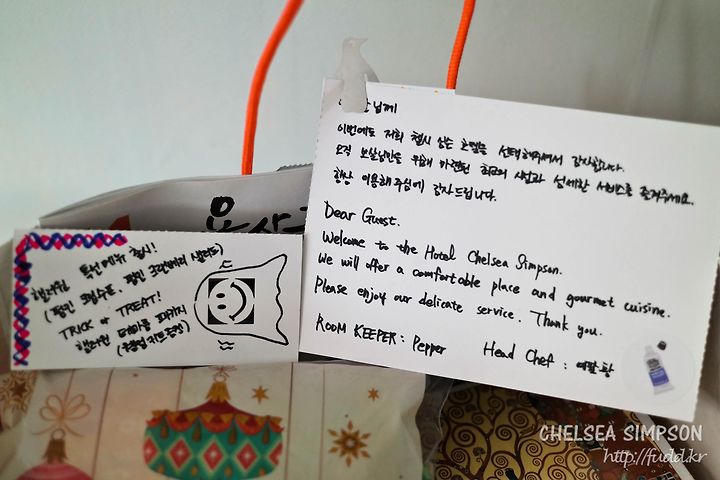 님께
이번에도 저희 첼시 심슨 호텔을 선택해주셔서 감사합니다.
오직 보살님만을 위해 마련된 최고의 시설과 섬세한 서비스를 즐겨주세요.
항상 이용해주심에 감사드립니다.
Dear Guest.
Welcome to the Hotel Chelsea Simpson.
We will offer a comfortable place and gourmet cuisine.
Please enjoy our delicate service. Thank you.
ROOM KEEPER : Pepper Head Chef :
핼러윈 특선메뉴 출시!
(펌킨 크림수프, 펌킨 크랜베리 샐러드)
TRICK or TREAT!
핼러윈 테마룸 패키지
CHELSEA SIMPSON
http://fudd.kr